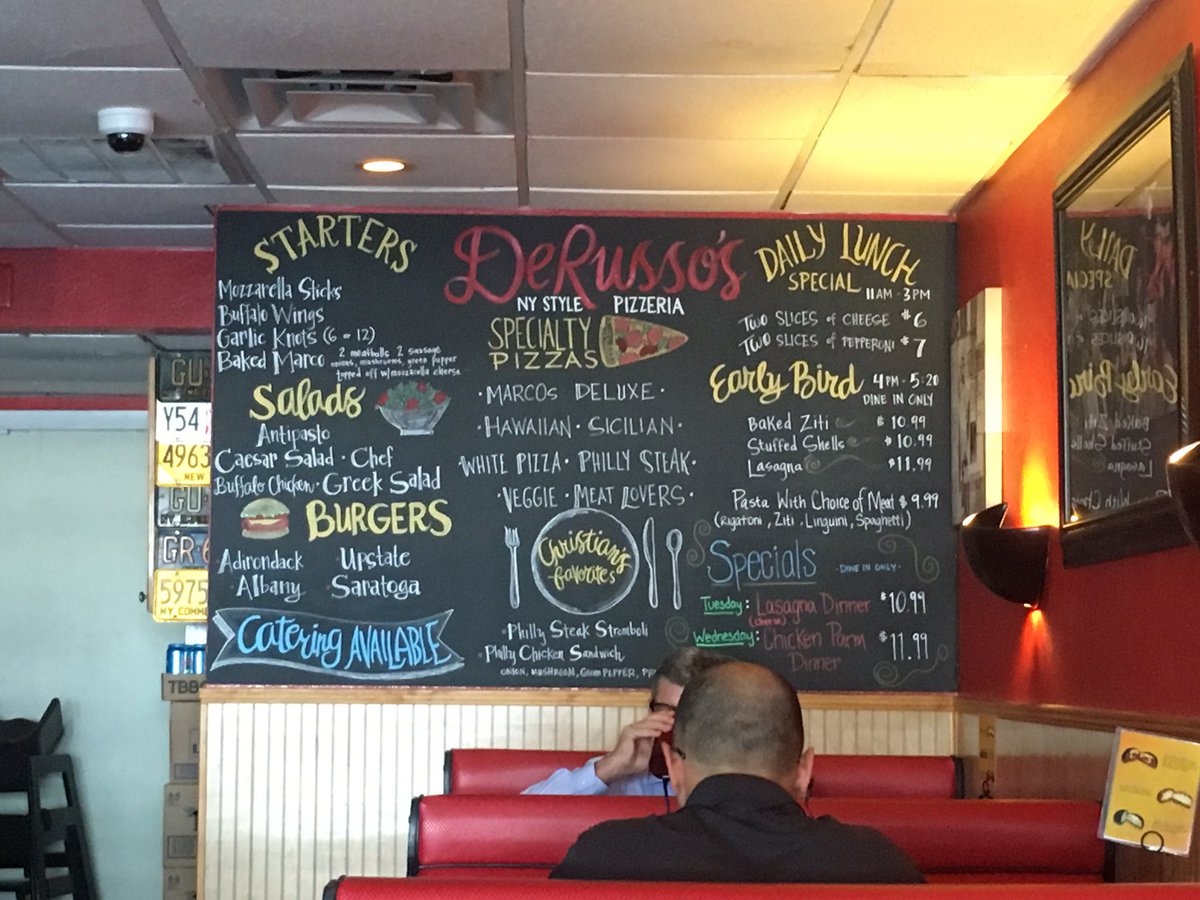 STARTERS
Mozzarella Sticks
Buffalo Wings
Garlic Knots (6 or 12)
Baked Marco
2 meatballs 2 sausage
onions, mushrooms, green pepper
topped off w/mozzarella cheese
Salads
Antipasto
Caesar Salad · Chef
Buffalo Chicken · Greek Salad
BURGERS
Adirondack Upstate
Albany Saratoga
Catering AVAILABLE
DeRusso's
NY STYLE PIZZERIA
SPECIALTY
PIZZAS
· MARCOS DELUXE ·
· HAWAIIAN · SICILIAN ·
· WHITE PIZZA · PHILLY STEAK ·
· VEGGIE · MEAT LOVERS ·
Christian's
favorites
· Philly Steak Stromboli
· Philly Chicken Sandwich
ONION, MUSHROOM, Green PEPPER,
DAILY LUNCH
SPECIAL
11AM - 3PM
TWO SLICES of CHEESE $6
TWO SLICES of PEPPERONI $7
Early Bird
4PM - 5:20
DINE IN ONLY
Baked Ziti $10.99
Stuffed Shells $10.99
Lasagna $11.99
Pasta With Choice of Meat $9.99
(Rigatoni, Ziti, Linguini, Spaghetti)
Specials
-DINE IN ONLY-
Tuesday: Lasagna Dinner $10.99
(cheese)
Wednesday: Chicken Parm $11.99
Dinner
GU
Y54
4963
NEW
GU
GR-6
5975
MY COMM
TBBC